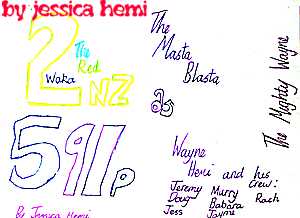 by jessica hemi
2
The
Red
Waka
NZ
591p
By Jessica Hemi
The
Masta
Blasta
The Mighty Wayne
Wayne
Hemi and his
Crew:
Jeremy Murry Rach
Doug Babara
Jess Jayne